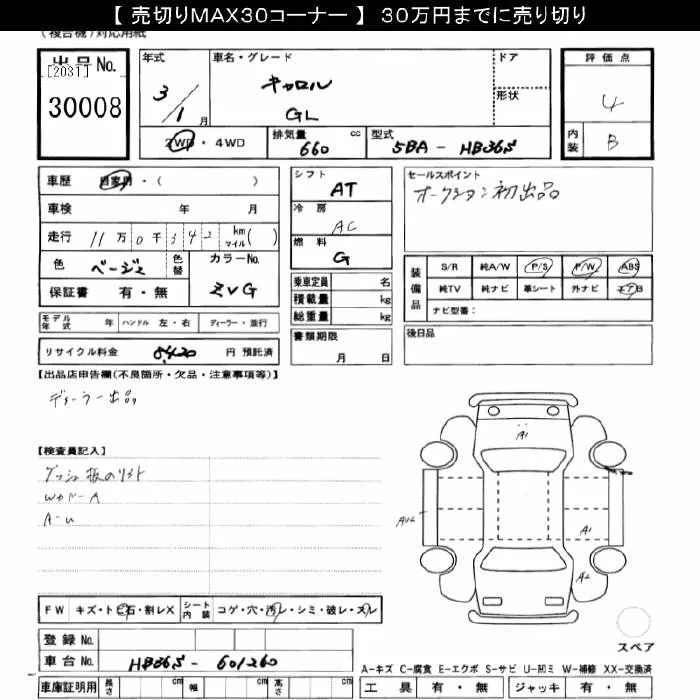 【 売切りMAX30コーナー 】 30万円までに売り切り
(複合機)対応用紙
出品No.
[2031]
30008
年式
3/1月
車名・グレード
キャロル
GL
ドア
形状
評価点
4
内装
B
2WD・4WD
排気量
660
cc
型式
5BA - HB36S
車歴
自家用・( )
車検 年 月
走行 11万0千342 km マイル ( )
色
ベージュ
色替
カラーNo.
ZVG
保証書 有・無
シフト
AT
冷房
AC
燃料
G
乗車定員 名
積載量 kg
総重量 kg
書類期限
月 日
セールスポイント
オークション初出品
装備品
S/R 純A/W P/S P/W ABS
純TV 純ナビ 革シート 外ナビ エアB
ナビ型番:
後日品
モデル年式 年 ハンドル 左・右 ディーラー・並行
リサイクル料金 8,420 円 預託済
【出品店申告欄(不良箇所・欠品・注意事項等)】
ディーラー出品
【検査員記入】
ダッシュ板のリフト
A-U
A1
AU2
A1
A2
FW キズ・トビ石・割レX
シート内装 コゲ・穴・汚レ・シミ・破レ・スレ
登録No.
車台No. HB36S - 601260
車庫証明用 長さ cm 幅 cm 高さ cm
スペア
A-キズ C-腐食 E-エクボ S-サビ U-凹ミ W-補修 XX-交換済
工具 有・無 ジャッキ 有・無